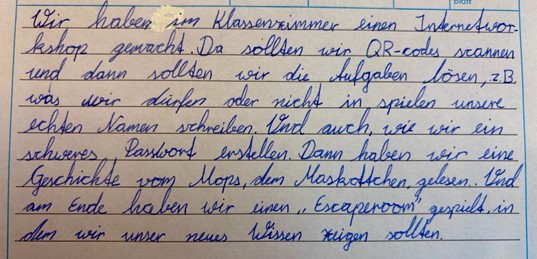 Wir haben im Klassenzimmer einen Internetwor-
kshop gemacht. Da sollten wir QR-codes scannen
und dann sollten wir die Aufgaben lösen, z.B.
was wir dürfen oder nicht in spielen unsere
echten Namen schreiben. Und auch, wie wir ein
schweres Passwort erstellen. Dann haben wir eine
Geschichte vom Mops, dem Maskottchen, gelesen. Und
am Ende haben wir einen „Escaperoom“ gespielt, in
dem wir unser neues Wissen zeigen sollten.